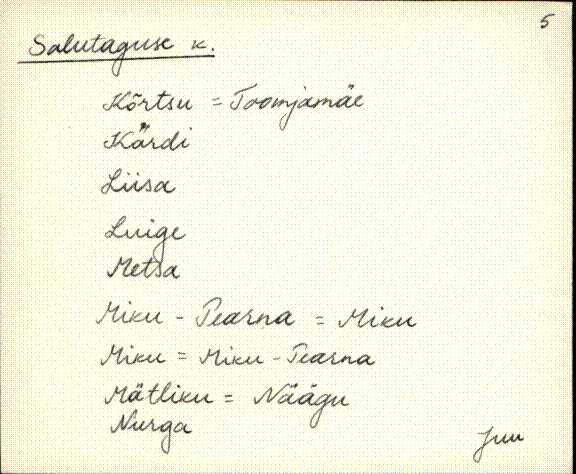 5
Salutaguse k.
Kõrtsu = Toomjamäe
Kärdi
Liisa
Luige
Metsa
Miku - Pearna = Miku
Miku = Miku - Pearna
Mätliku = Näägu
Nurga
Juu